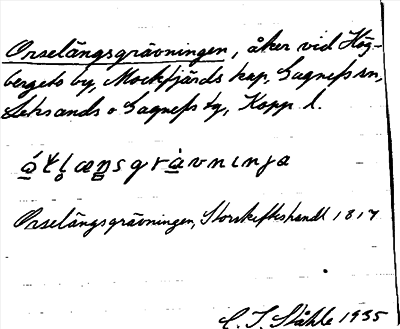 Orselängsgrävningen, åker vid Hög-
bergets by, Mockfjärds kap, Gagnefs sn,
Leksands o Gagnefs tg, Kopp. l.
Orselängsgrävningen, Storskifteshandl 1817
C. I. Ståhle 1935